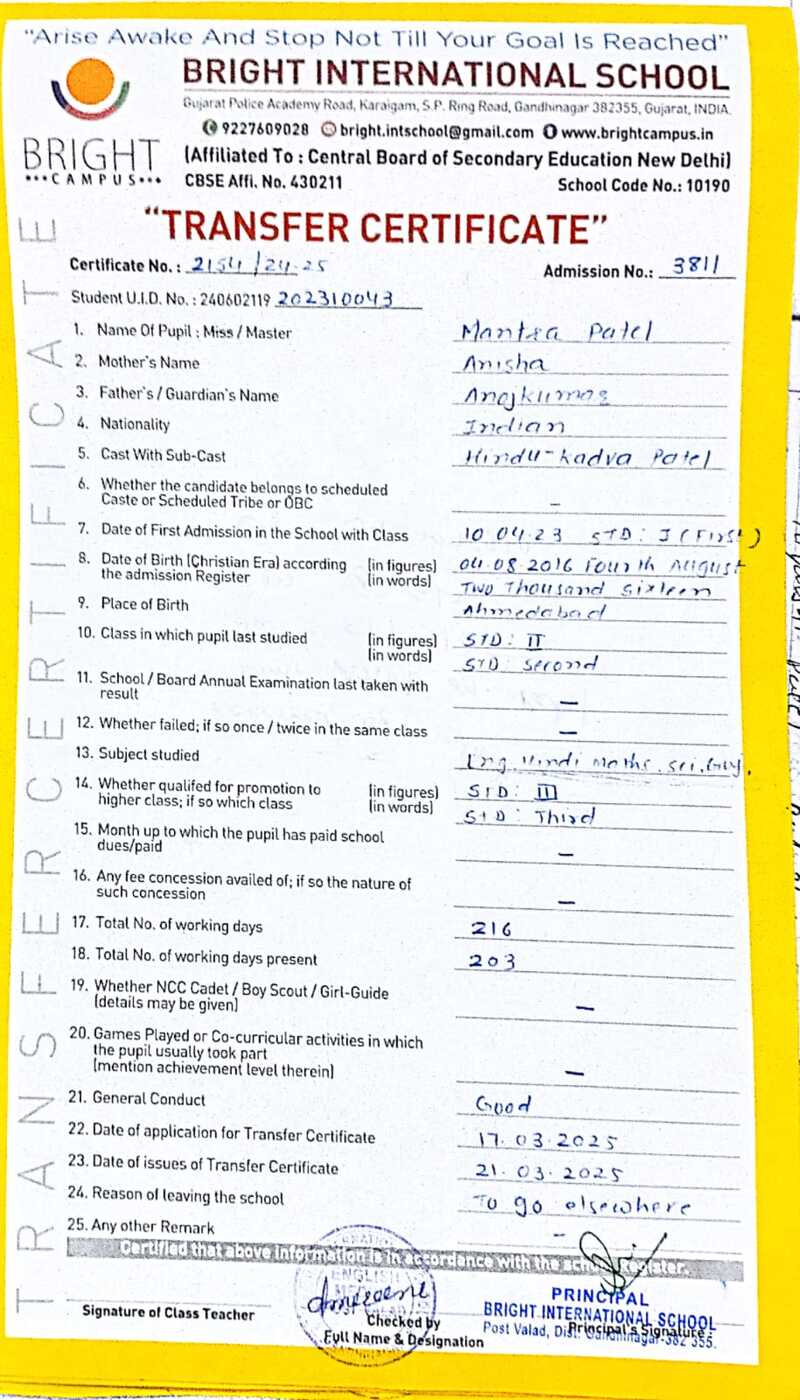 "Arise Awake And Stop Not Till Your Goal Is Reached"
BRIGHT INTERNATIONAL SCHOOL
Gujarat Police Academy Road, Karaigam, S.P. Ring Road, Gandhinagar 382355, Gujarat, INDIA.
9227609028 bright.intschool@gmail.com www.brightcampus.in
BRIGHT
•••CAMPUS•••
(Affiliated To : Central Board of Secondary Education New Delhi)
CBSE Affi. No. 430211 School Code No.: 10190
"TRANSFER CERTIFICATE"
TRANSFER CERTIFICATE
Certificate No. : 2154/24-25 Admission No.: 3811
Student U.I.D. No. : 240602119 202310043
1. Name Of Pupil : Miss / Master Mantra Patel
2. Mother's Name Anisha
3. Father's / Guardian's Name Anojkumar
4. Nationality Indian
5. Cast With Sub-Cast Hindu-Kadva Patel
6. Whether the candidate belongs to scheduled
Caste or Scheduled Tribe or OBC –
7. Date of First Admission in the School with Class 10 04 23 STD: I (First)
8. Date of Birth (Christian Era) according (in figures) 04.08.2016 Fourth August
the admission Register (in words) Two Thousand Sixteen
9. Place of Birth Ahmedabad
10. Class in which pupil last studied (in figures) STD: II
(in words) STD: Second
11. School / Board Annual Examination last taken with
result –
12. Whether failed; if so once / twice in the same class –
13. Subject studied Eng. Hindi Maths. Sci. Guj.
14. Whether qualifed for promotion to (in figures) STD: III
higher class; if so which class (in words) STD: Third
15. Month up to which the pupil has paid school
dues/paid –
16. Any fee concession availed of; if so the nature of
such concession –
17. Total No. of working days 216
18. Total No. of working days present 203
19. Whether NCC Cadet / Boy Scout / Girl-Guide
(details may be given) –
20. Games Played or Co-curricular activities in which
the pupil usually took part
(mention achievement level therein) –
21. General Conduct Good
22. Date of application for Transfer Certificate 17.03.2025
23. Date of issues of Transfer Certificate 21.03.2025
24. Reason of leaving the school To go elsewhere
25. Any other Remark –
Certified that above information is in accordance with the school register.
ENGLISH
PRINCIPAL
BRIGHT INTERNATIONAL SCHOOL
Post Valad, Dist. Gandhinagar-382 355.
Signature of Class Teacher
Checked by
Full Name & Designation
Principal's Signature